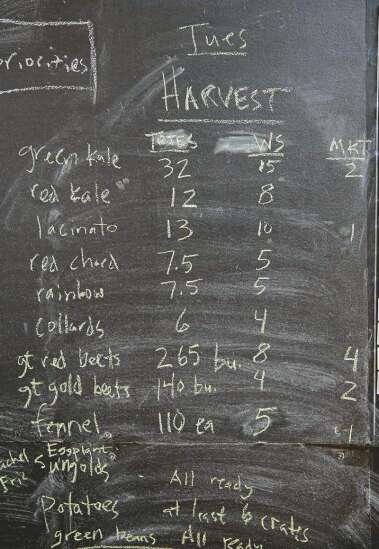 Tues
priorities
HARVEST
TOTES WS MKT
green kale 32 15 2
red kale 12 8
lacinato 13 10 1
red chard 7.5 5
rainbow 7.5 5
collards 6 4
gt red beets 265 bu. 8 4
gt gold beets 140 bu. 4 2
fennel 110 ea 5 1
Eggplant
sungolds All ready
Potatoes at least 6 crates
green beans All ready